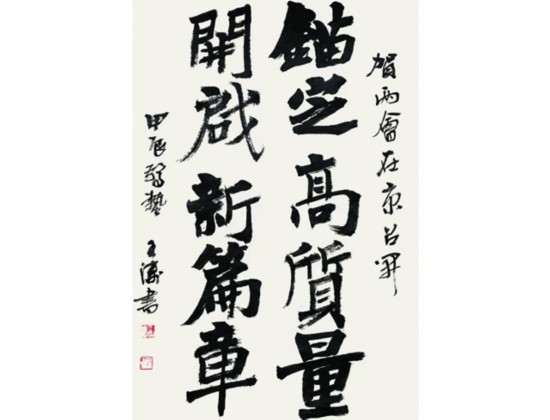 賀兩會在京召開
錨定高質量
開啟新篇章
甲辰驚蟄 王濤書